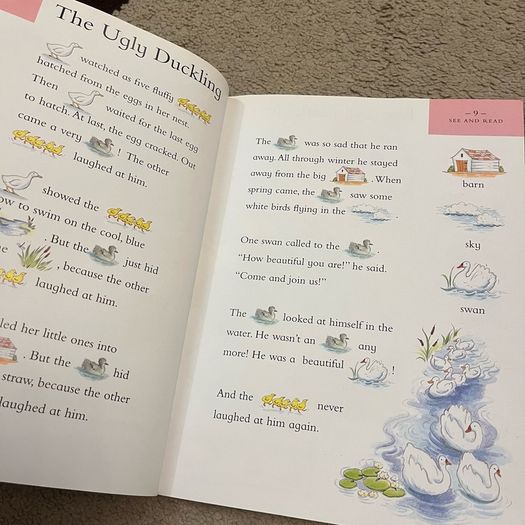 The Ugly Duckling
watched as five fluffy
hatched from the eggs in her nest.
Then waited for the last egg
to hatch. At last, the egg cracked. Out
came a very ! The other
laughed at him.
showed the
to swim on the cool, blue
. But the just hid
, because the other
laughed at him.
her little ones into
. But the hid
straw, because the other
laughed at him.
– 9 –
SEE AND READ
The was so sad that he ran
away. All through winter he stayed
away from the big . When
spring came, the saw some
white birds flying in the .
One swan called to the .
“How beautiful you are!” he said.
“Come and join us!”
The looked at himself in the
water. He wasn't an any
more! He was a beautiful !
And the never
laughed at him again.
barn
sky
swan